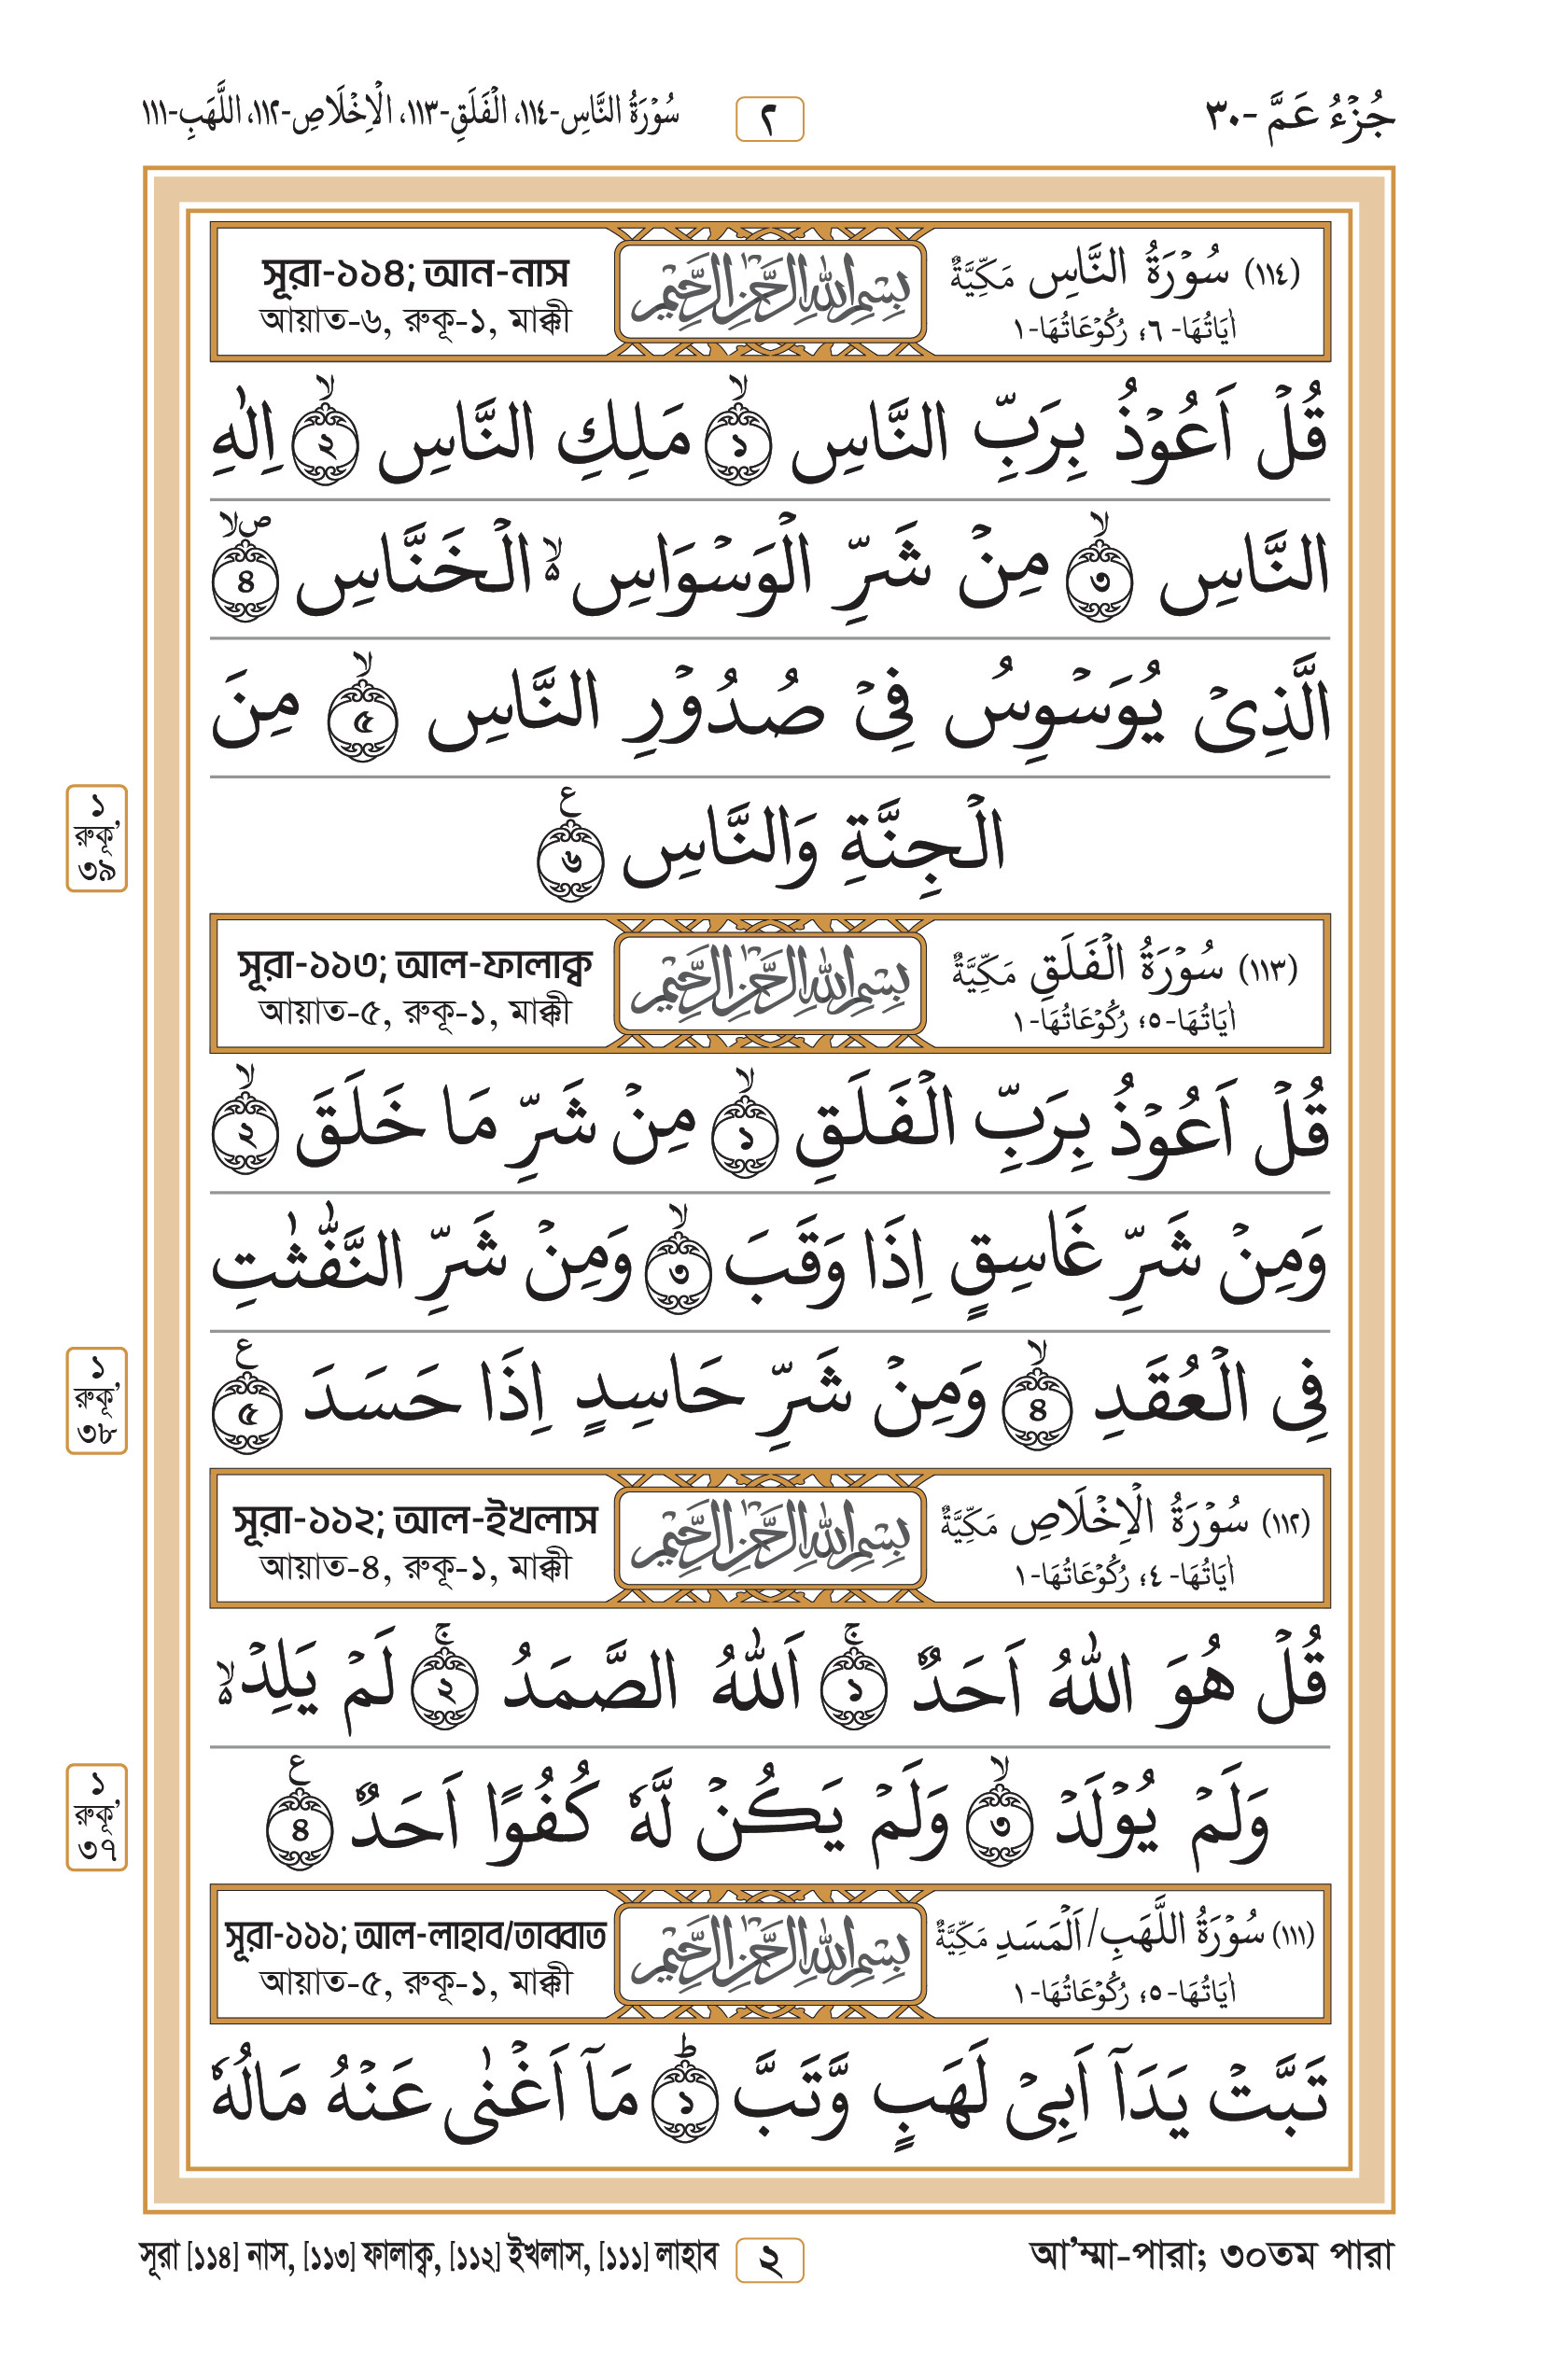 جُزْءُ عَمَّ -٣٠
٢
سُوْرَةُ النَّاسِ-١١٤، الْفَلَقِ-١١٣، الْاِخْلَاصِ-١١٢، اللَّهَبِ-١١١
(١١٤) سُوْرَةُ النَّاسِ مَكِّيَّةٌ
اٰيَاتُهَا- ٦؛ رُكُوْعَاتُهَا-١
بِسْمِ اللهِ الرَّحْمٰنِ الرَّحِيْمِ
সূরা-১১৪; আন-নাস
আয়াত-৬, রুকূ-১, মাক্কী
قُلْ اَعُوْذُ بِرَبِّ النَّاسِ ۙ‏ ১ مَلِكِ النَّاسِ ۙ‏ ২ اِلٰهِ
النَّاسِ ۙ‏ ৩ مِنْ شَرِّ الْوَسْوَاسِ ۙ۬ الْخَنَّاسِ ۪ۙ‏ ৪
الَّذِىْ يُوَسْوِسُ فِىْ صُدُوْرِ النَّاسِ ۙ‏ ৫ مِنَ
الْجِنَّةِ وَالنَّاسِ ع ৬
১
রুকূ,
৩৯
(١١٣) سُوْرَةُ الْفَلَقِ مَكِّيَّةٌ
اٰيَاتُهَا-٥؛ رُكُوْعَاتُهَا-١
بِسْمِ اللهِ الرَّحْمٰنِ الرَّحِيْمِ
সূরা-১১৩; আল-ফালাক্ব
আয়াত-৫, রুকূ-১, মাক্কী
قُلْ اَعُوْذُ بِرَبِّ الْفَلَقِ ۙ‏ ১ مِنْ شَرِّ مَا خَلَقَ ۙ‏ ২
وَمِنْ شَرِّ غَاسِقٍ اِذَا وَقَبَ ۙ‏ ৩ وَمِنْ شَرِّ النَّفّٰثٰتِ
فِى الْعُقَدِ ۙ‏ ৪ وَمِنْ شَرِّ حَاسِدٍ اِذَا حَسَدَ ع ৫
১
রুকূ,
৩৮
(١١٢) سُوْرَةُ الْاِخْلَاصِ مَكِّيَّةٌ
اٰيَاتُهَا- ٤؛ رُكُوْعَاتُهَا-١
بِسْمِ اللهِ الرَّحْمٰنِ الرَّحِيْمِ
সূরা-১১২; আল-ইখলাস
আয়াত-৪, রুকূ-১, মাক্কী
قُلْ هُوَ اللّٰهُ اَحَدٌ ۚ‏ ১ اَللّٰهُ الصَّمَدُ ۚ‏ ২ لَمْ يَلِدْ ۙ۬
وَلَمْ يُوْلَدْ ۙ‏ ৩ وَلَمْ يَكُنْ لَّهٗ كُفُوًا اَحَدٌ ع ৪
১
রুকূ,
৩৭
(١١١) سُوْرَةُ اللَّهَبِ/اَلْمَسَدِ مَكِّيَّةٌ
اٰيَاتُهَا-٥؛ رُكُوْعَاتُهَا-١
بِسْمِ اللهِ الرَّحْمٰنِ الرَّحِيْمِ
সূরা-১১১; আল-লাহাব/তাব্বাত
আয়াত-৫, রুকূ-১, মাক্কী
تَبَّتْ يَدَآ اَبِىْ لَهَبٍ وَّتَبَّ ؕ‏ ১ مَآ اَغْنٰى عَنْهُ مَالُهٗ
সূরা [১১৪] নাস, [১১৩] ফালাক্ব, [১১২] ইখলাস, [১১১] লাহাব
২
আ’ম্মা-পারা; ৩০তম পারা